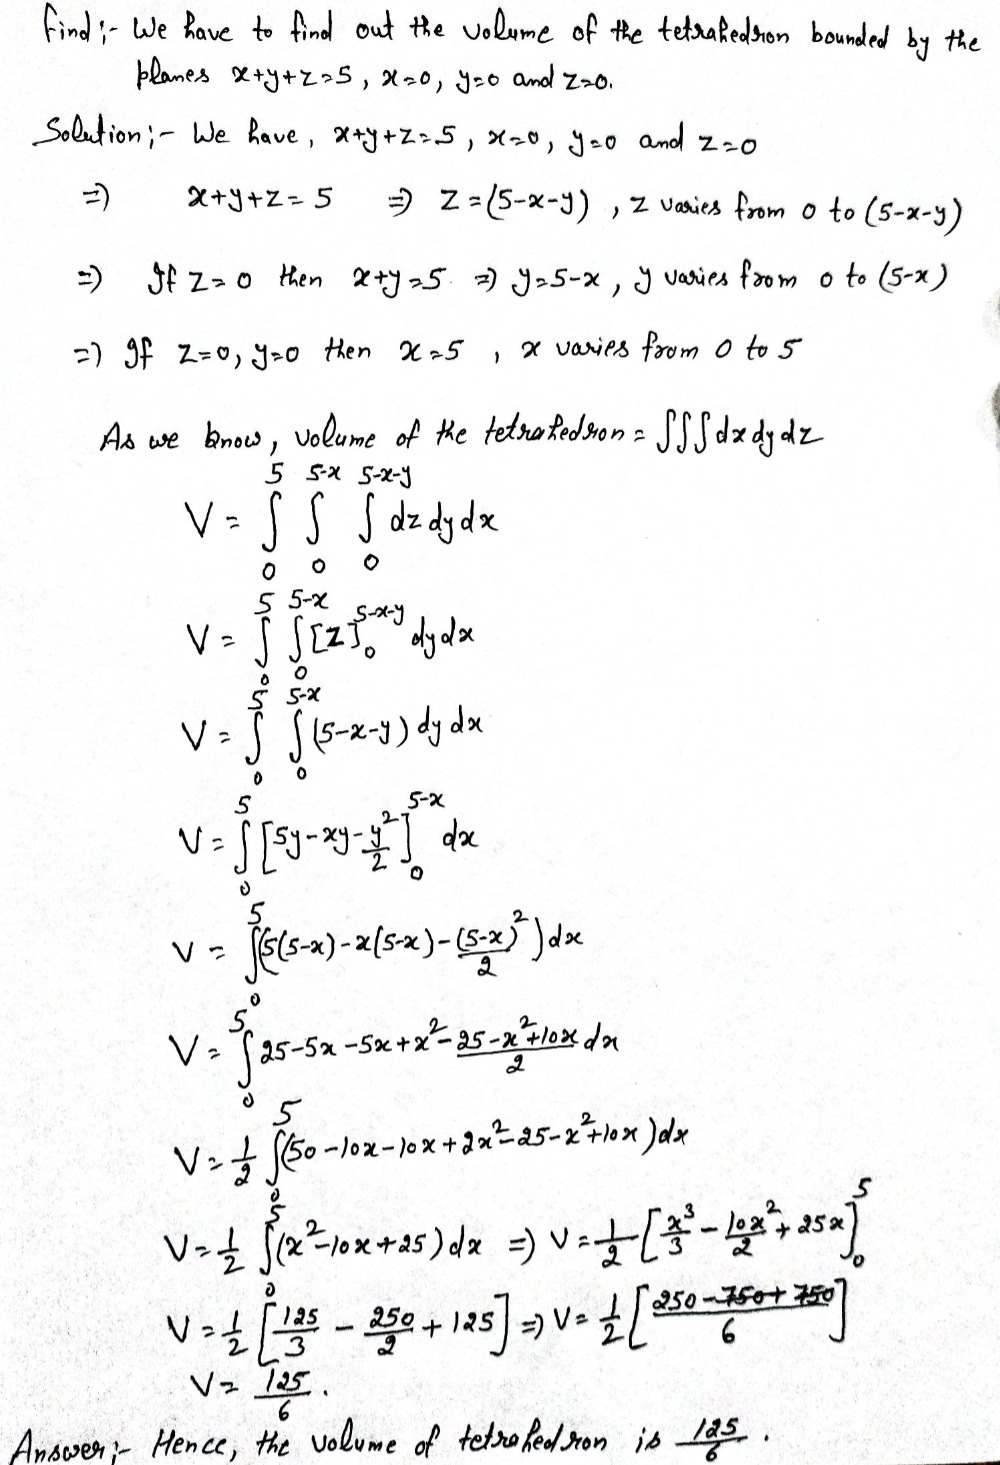 Find :- We have to find out the volume of the tetrahedron bounded by the
planes x+y+z=5, x=0, y=0 and z=0.
Solution :- We have, x+y+z=5, x=0, y=0 and z=0
=> x+y+z=5 => z=(5-x-y), z varies from 0 to (5-x-y)
=> If z=0 then x+y=5. => y=5-x, y varies from 0 to (5-x)
=> If z=0, y=0 then x=5, x varies from 0 to 5
As we know, volume of the tetrahedron = ∫∫∫ dx dy dz
V = ∫₀⁵ ∫₀^(5-x) ∫₀^(5-x-y) dz dy dx
V = ∫₀⁵ ∫₀^(5-x) [z]₀^(5-x-y) dy dx
V = ∫₀⁵ ∫₀^(5-x) (5-x-y) dy dx
V = ∫₀⁵ [5y-xy-y²/2]₀^(5-x) dx
V = ∫₀⁵ (5(5-x)-x(5-x)-(5-x)²/2) dx
V = ∫₀⁵ 25-5x-5x+x²-(25-x²+10x)/2 dx
V = 1/2 ∫₀⁵ (50-10x-10x+2x²-25-x²+10x) dx
V = 1/2 ∫₀⁵ (x²-10x+25) dx => V = 1/2 [x³/3 - 10x²/2 + 25x]₀⁵
V = 1/2 [125/3 - 250/2 + 125] => V = 1/2 [(250-750+750)/6]
V = 125/6.
Answer :- Hence, the volume of tetrahedron is 125/6.